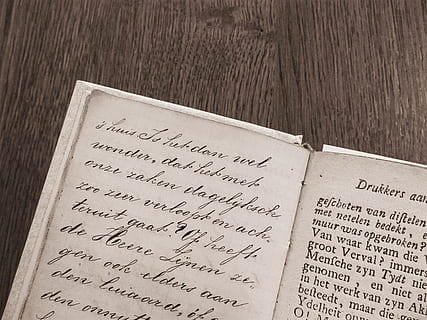 's huis Is het dan wel
wonder, dat het met
onze zaken dagelyksch
zoo zeer en ach-
teruit gaat? Of heeft
de Heere Zijnen ze-
gen ook elders aan
den luiaard,
den
Drukkers aan
geſchoten van diſtelen
met netelen bedekt, e
muur was opgebroken?
Van waar kwam die V
groot Verval? immers
Menſche zyn Tydt nie
genomen, en niet al
in het werk van zyn Ak
beſteedt, maar die ge
Ydelheit
O! M